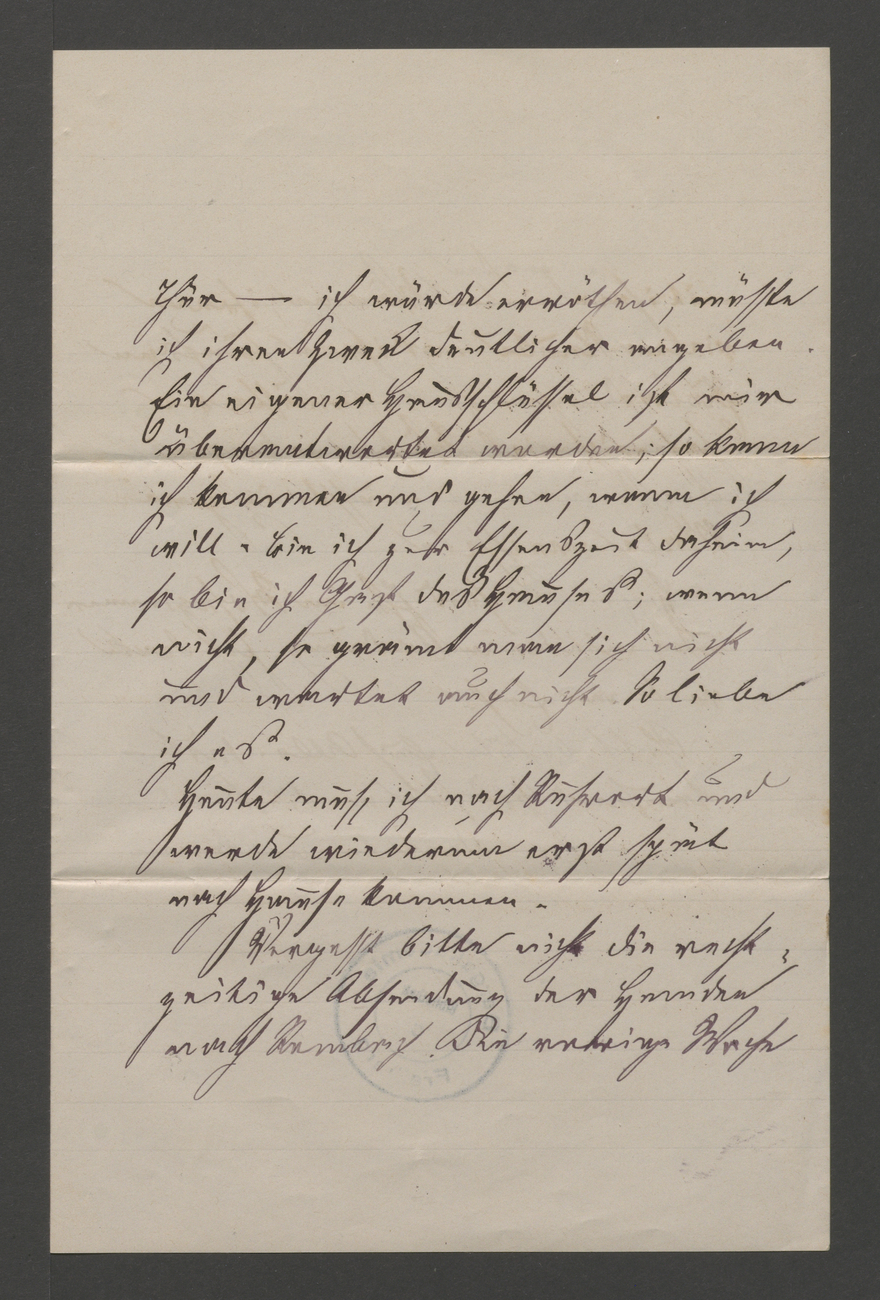 Thür — ich würde erröthen, müßte
ich ihren Zweck deutlicher angeben.
Ein eigener Hausschlüssel ist mir
überantwortet worden; so kann
ich kommen und gehen, wann ich
will - bin ich zur Essenszeit daheim,
so bin ich Gast des Hauses; wenn
nicht, so grämt man sich nicht
und wartet auch nicht. So liebe
ich es.
Heute muß ich nach Ruhrort und
werde wiederum erst spät
nach Hause kommen.
Vergeßt bitte nicht die recht-
zeitige Absendung der Hemden
nach Die vorige Woche